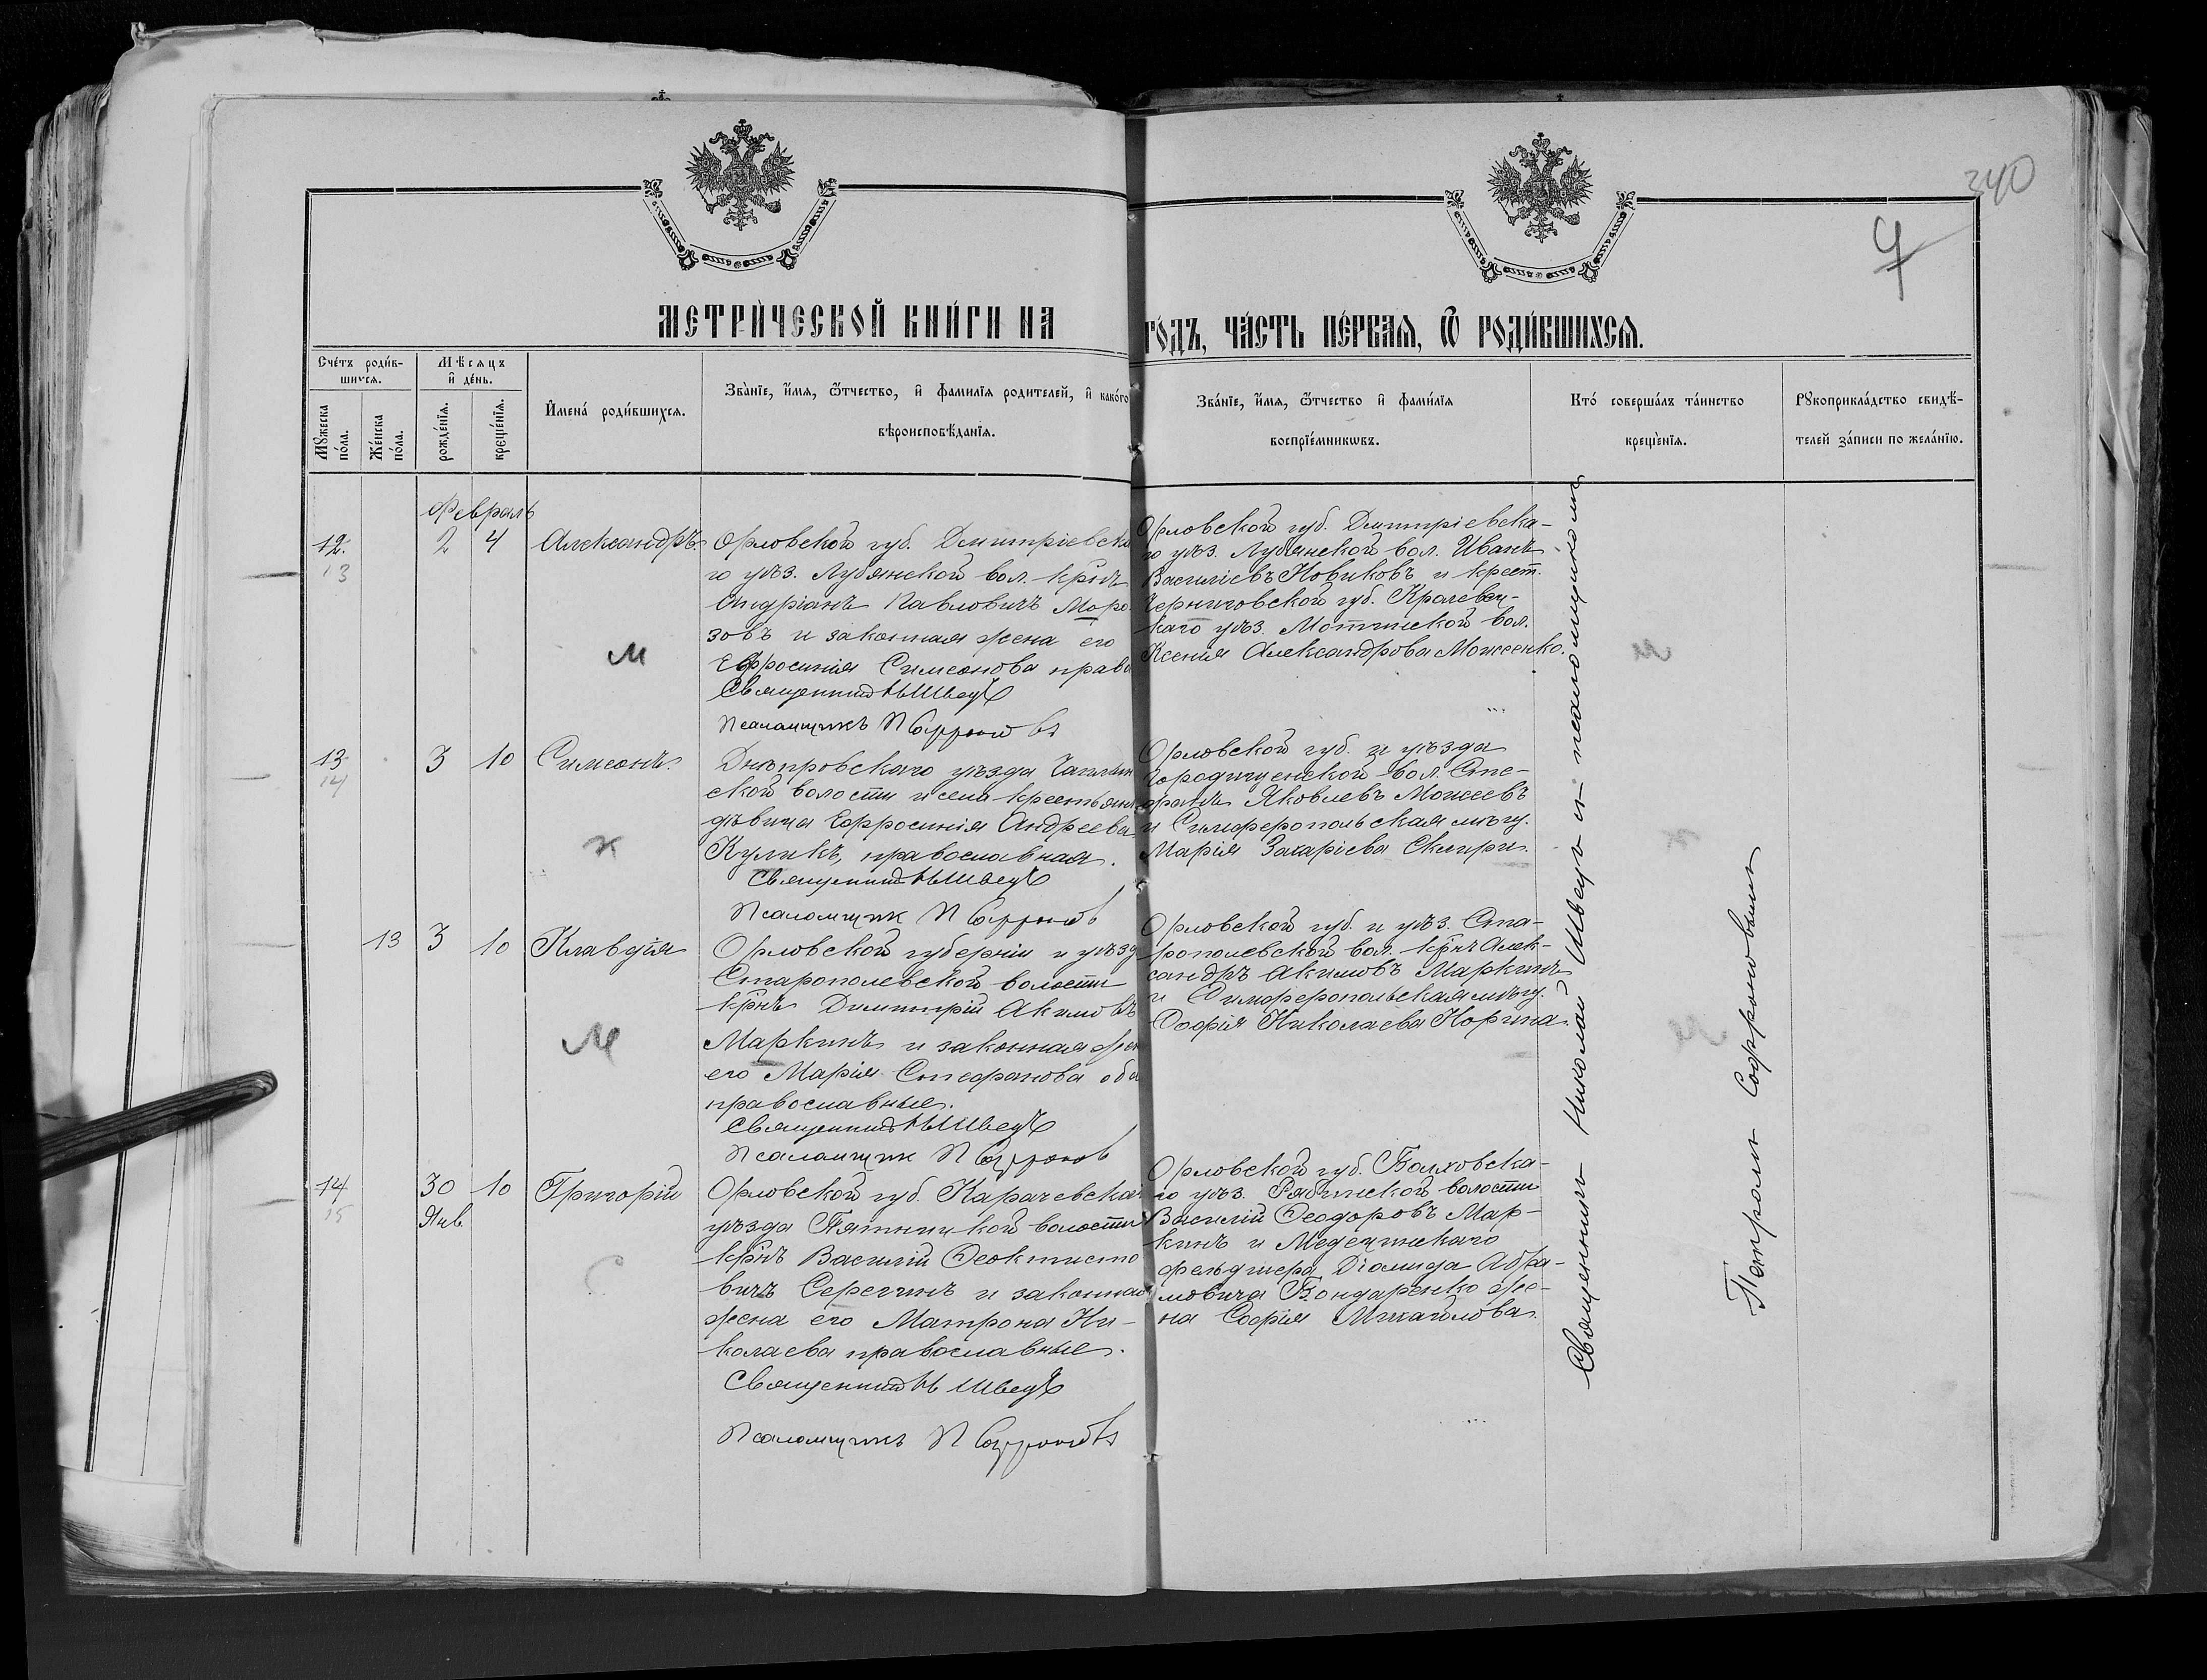 340
4
МЕТРИ́ЧЕСКОЙ КНИ́ГИ НА
ГО́ДЪ, ЧА́СТЬ ПЕ́РВАЯ, Ѿ РОДИ́ВШИХСЯ.
Сче́тъ роди́в-
шихся.
Мѣсяцъ
и де́нь.
Мꙋжеска
по́ла.
Же́нска
по́ла.
рожде́нїя.
креще́нїя.
Имена́ роди́вшихся.
Зва́нїе, и́мя, ѻ́тчество, и фамилїя родителей, и како́го
вѣроисповѣ́данїя.
Зва́нїе, и́мя, ѻ́тчество и фами́лїя
воспрїе́мникѡвъ.
Кто́ соверша́лъ та́инство
креще́нїя.
Рꙋкоприкла́дство свидѣ́-
телей за́писи по жела́нїю.
Февраль
12.
13
2
4
Александръ
Орловской губ. Дмитріевска
го уѣз. Лубянской вол. крнъ
Андріанъ Павловичъ Моро
зовъ и законная жена его
Ефросинія Симеонова прав
Священникъ Н Швецъ
Псаломщикъ П Софроновъ
Орловской губ. Дмитріевска-
го уѣз. Лубянской вол. Иванъ
Василіевъ Новиковъ и крест.
Черниговской губ. Кролевец-
каго уѣз. вол.
Ксенія Александрова Моисеенко.
м
м
13
14
3
10
Симеонъ.
Днѣпровскаго уѣзда
ской волости и села крестьян
дѣвица Ефросинія Андреева
Куликъ, православная.
Священникъ Н Швецъ
Псаломщик П Софронов
Орловской губ. и уѣзда
Городищенской вол. Сте-
фанъ Яковлевъ Моисеевъ
и Симферопольская мѣщ.
Марія Захаріева
ж
13
3
10
Клавдія
Орловской губерніи и уѣзд
Старополевской волости
крнъ Димитрій Акимовъ
Маркинъ и законная жен
его Марія Стефанова оба
православные.
Священникъ Н Швецъ
Псаломщик П Софронов
Орловской губ. и уѣз. Ста-
рополевской вол. крнъ Алек-
сандръ Акимовъ Маркинъ
и Симферопольская мѣщ.
Софія Николаева Корина.
М
М
14
15
30
Янв
10
Григорій
Орловской губ. Карачевска
уѣзда Пятницкой волости
крнъ Василій Феоктисто
вичъ Серегинъ и законная
жена его Матрона Ни-
колаева православные.
Священникъ Н Швецъ
Псаломщикъ П Софроновъ
Орловской губ. Болховска-
го уѣз. Рябинской волости
Василій Феодоровъ Мар-
кинъ и Медецинскаго
фельдшера Діомида Абра-
мовича Бондаренко же-
на Софія Михайлова.
С
Священникъ Николай Швецъ и псаломщикомъ
Петромъ Софроновымъ